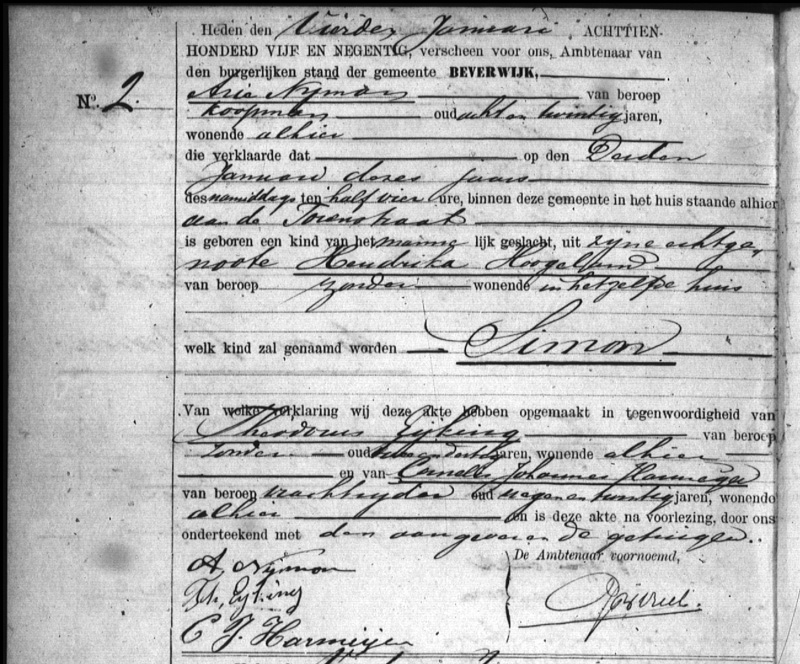 Heden den Vierden Januari ACHTTIEN-
HONDERD VIJF EN NEGENTIG, verscheen voor ons, Ambtenaar van
den burgerlijken stand der gemeente BEVERWIJK,
No. 2.
Arie Nijman van beroep
koopman oud acht en twintig jaren,
wonende alhier
die verklaarde dat op den Derden
Januari dezes jaars
des namiddags ten half vier ure, binnen deze gemeente in het huis staande alhier
aan de Torenstraat
is geboren een kind van het manne lijk geslacht, uit zijne echtge-
noote Hendrika Hoogeland
van beroep zonder wonende in hetzelfde huis
welk kind zal genaamd worden Simon.
Van welke verklaring wij deze akte hebben opgemaakt in tegenwoordigheid van
Theodorus Eijking van beroep
zonder oud jaren, wonende alhier
en van Cornelis Johannes Harmeijer
van beroep vrachtrijder oud negen en twintig jaren, wonende
alhier en is deze akte na voorlezing, door ons
onderteekend met den aangever en de getuigen.
De Ambtenaar voornoemd,
A. Nijman
Th. Eijking
C J. Harmeijer